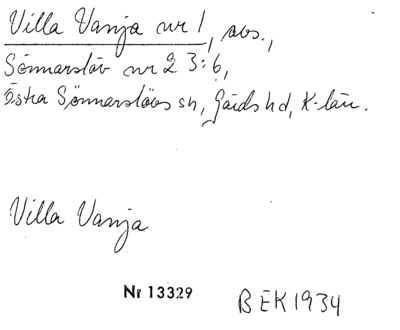 Villa Vanja nr 1, avs.,
Sönnarslöv nr 2 3:6,
Östra Sönnarslövs sn, Gärds hd, K-län.
Villa Vanja
Nr 13329
BEK 1934